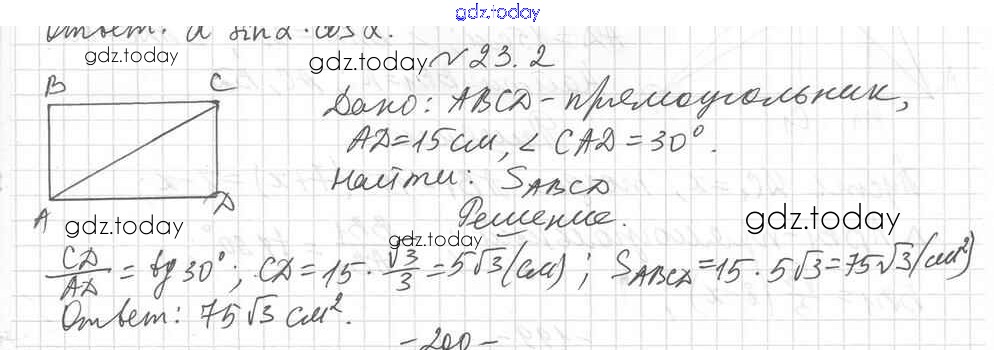 gdz.today
Ответ: a² sinα · cosα.
gdz.today
gdz.today
№ 23.2
B C
Дано: ABCD - прямоугольник,
AD = 15 см, ∠ CAD = 30°.
Найти: S_ABCD
A D
Решение.
gdz.today
gdz.today
gdz.today
CD/AD = tg 30°; CD = 15 · √3/3 = 5√3 (см); S_ABCD = 15 · 5√3 = 75√3 (см²)
Ответ: 75√3 см².
- 200 -